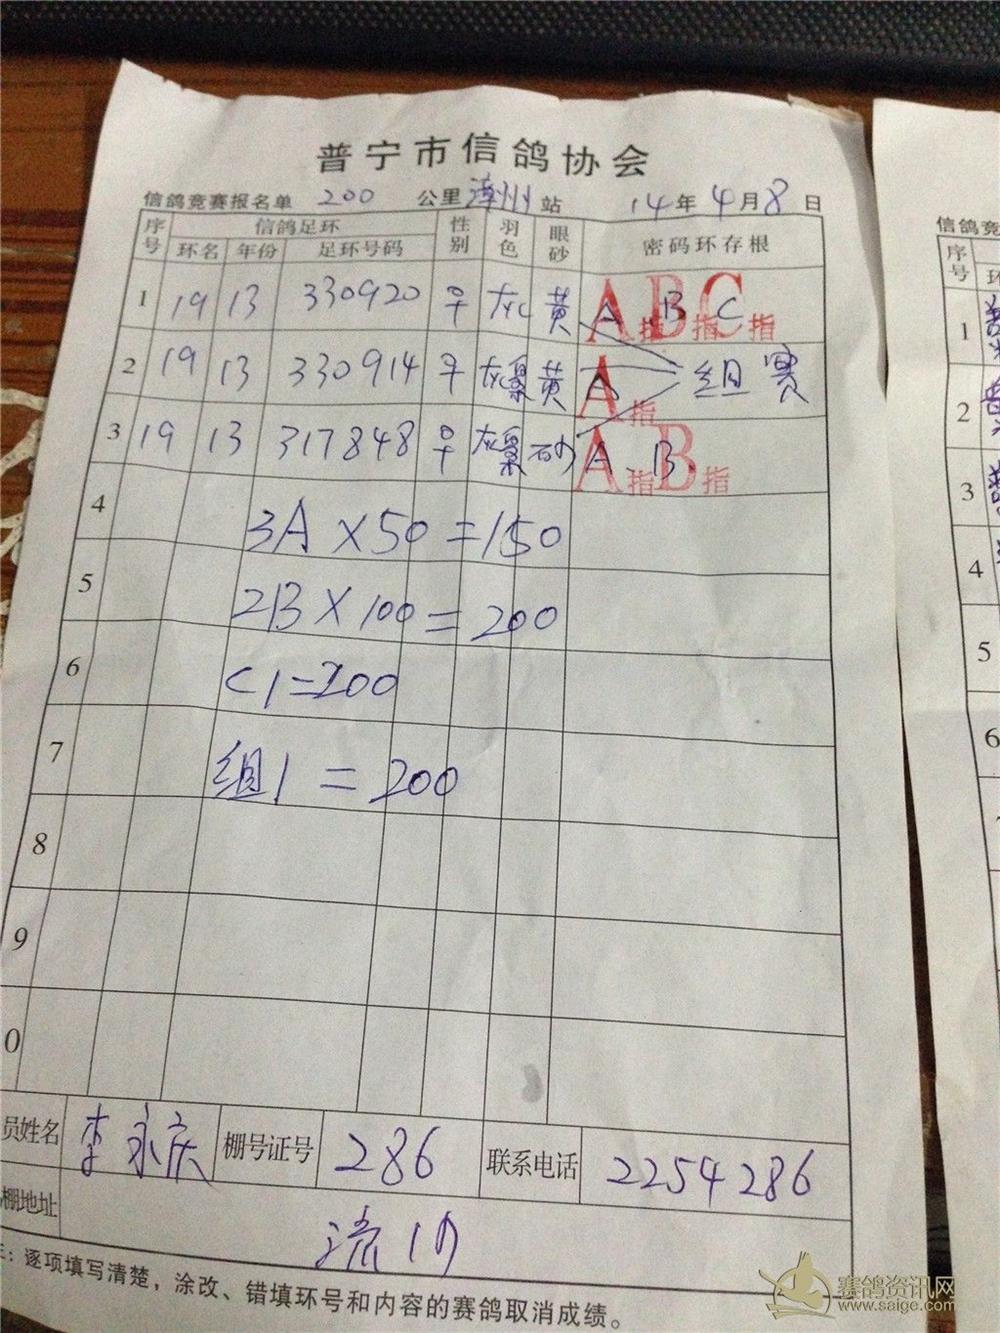 普宁市信鸽协会
信鸽竞赛报名单 200 公里 漳州 站 14年4月8日
序号 信鸽足环 性别 羽色 眼砂 密码环存根
环名 年份 足环号码
1 19 13 330920 ♀ 灰 黄 A指 B指 C指
2 19 13 330914 ♀ 黄 A指 组赛
3 19 13 317848 ♀ 砂 A指 B指
4 3A×50=150
5 2B×100=200
6 C1=200
7 组1=200
8
9
0
员姓名 李永庆 棚号证号 286 联系电话 2254286
棚地址 流沙
：逐项填写清楚，涂改、错填环号和内容的赛鸽取消成绩。
信鸽竞
序号 环
1
2
3
4
5
6
赛鸽资讯网
www.saige.com